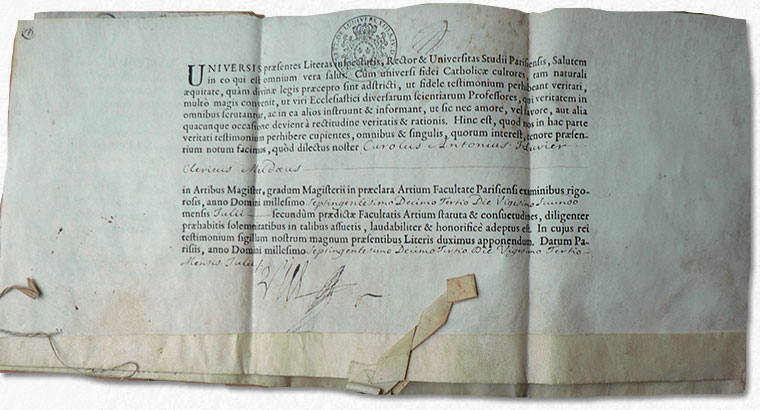 UNIVERSIS præsentes Literas inspecturis, Rector & Universitas Studii Parisiensis, Salutem
in eo qui est omnium vera salus. Cùm universi fidei Catholicæ cultores, tam naturali
æquitate, quàm divinæ legis præcepto sint adstricti, ut fidele testimonium perhibeant veritati,
multò magis convenit, ut viri Ecclesiastici diversarum scientiarum Professores, qui veritatem in
omnibus scrutantur, ac in ea alios instruunt & informant, ut sic nec amore, vel favore, aut alia
quacunque occasione devient à rectitudine veritatis & rationis. Hinc est, quod nos in hac parte
veritati testimonium perhibere cupientes, omnibus & singulis, quorum interest, tenore præsen-
tium notum facimus, quòd dilectus noster Carolus Antonius
Clericus
in Artibus Magister, gradum Magisterii in præclara Artium Facultate Parisiensi examinibus rigo-
rosis, anno Domini millesimo Septingentesimo Decimo Tertio Die Vigesimo
mensis Julii secundùm prædictæ Facultatis Artium statuta & consuetudines, diligenter
præhabitis solemnitatibus in talibus assuetis, laudabiliter & honorificè adeptus est. In cujus rei
testimonium sigillum nostrum magnum præsentibus Literis duximus apponendum. Datum Pa-
risiis, anno Domini millesimo Septingentesimo Decimo Tertio Die Vigesimo Tertio
Mensis Julii